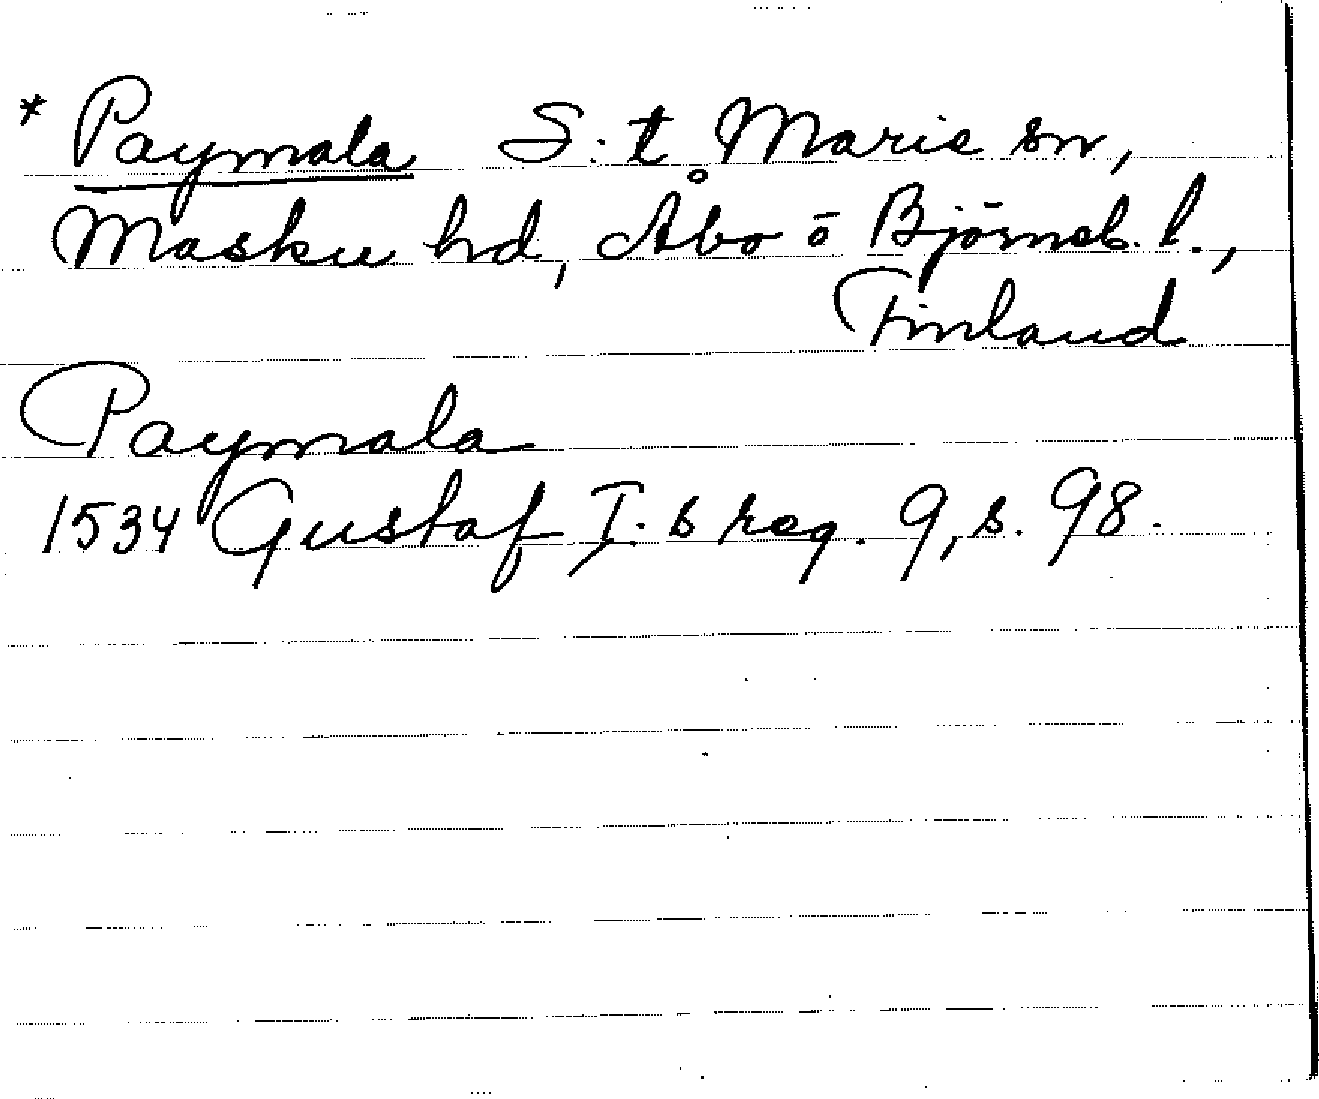 * Paymala S:t Marie sn,
Masku hd, Åbo ō Björneb. l.,
Finland
Paymala
1534 Gustaf I:s reg. 9, s. 98.